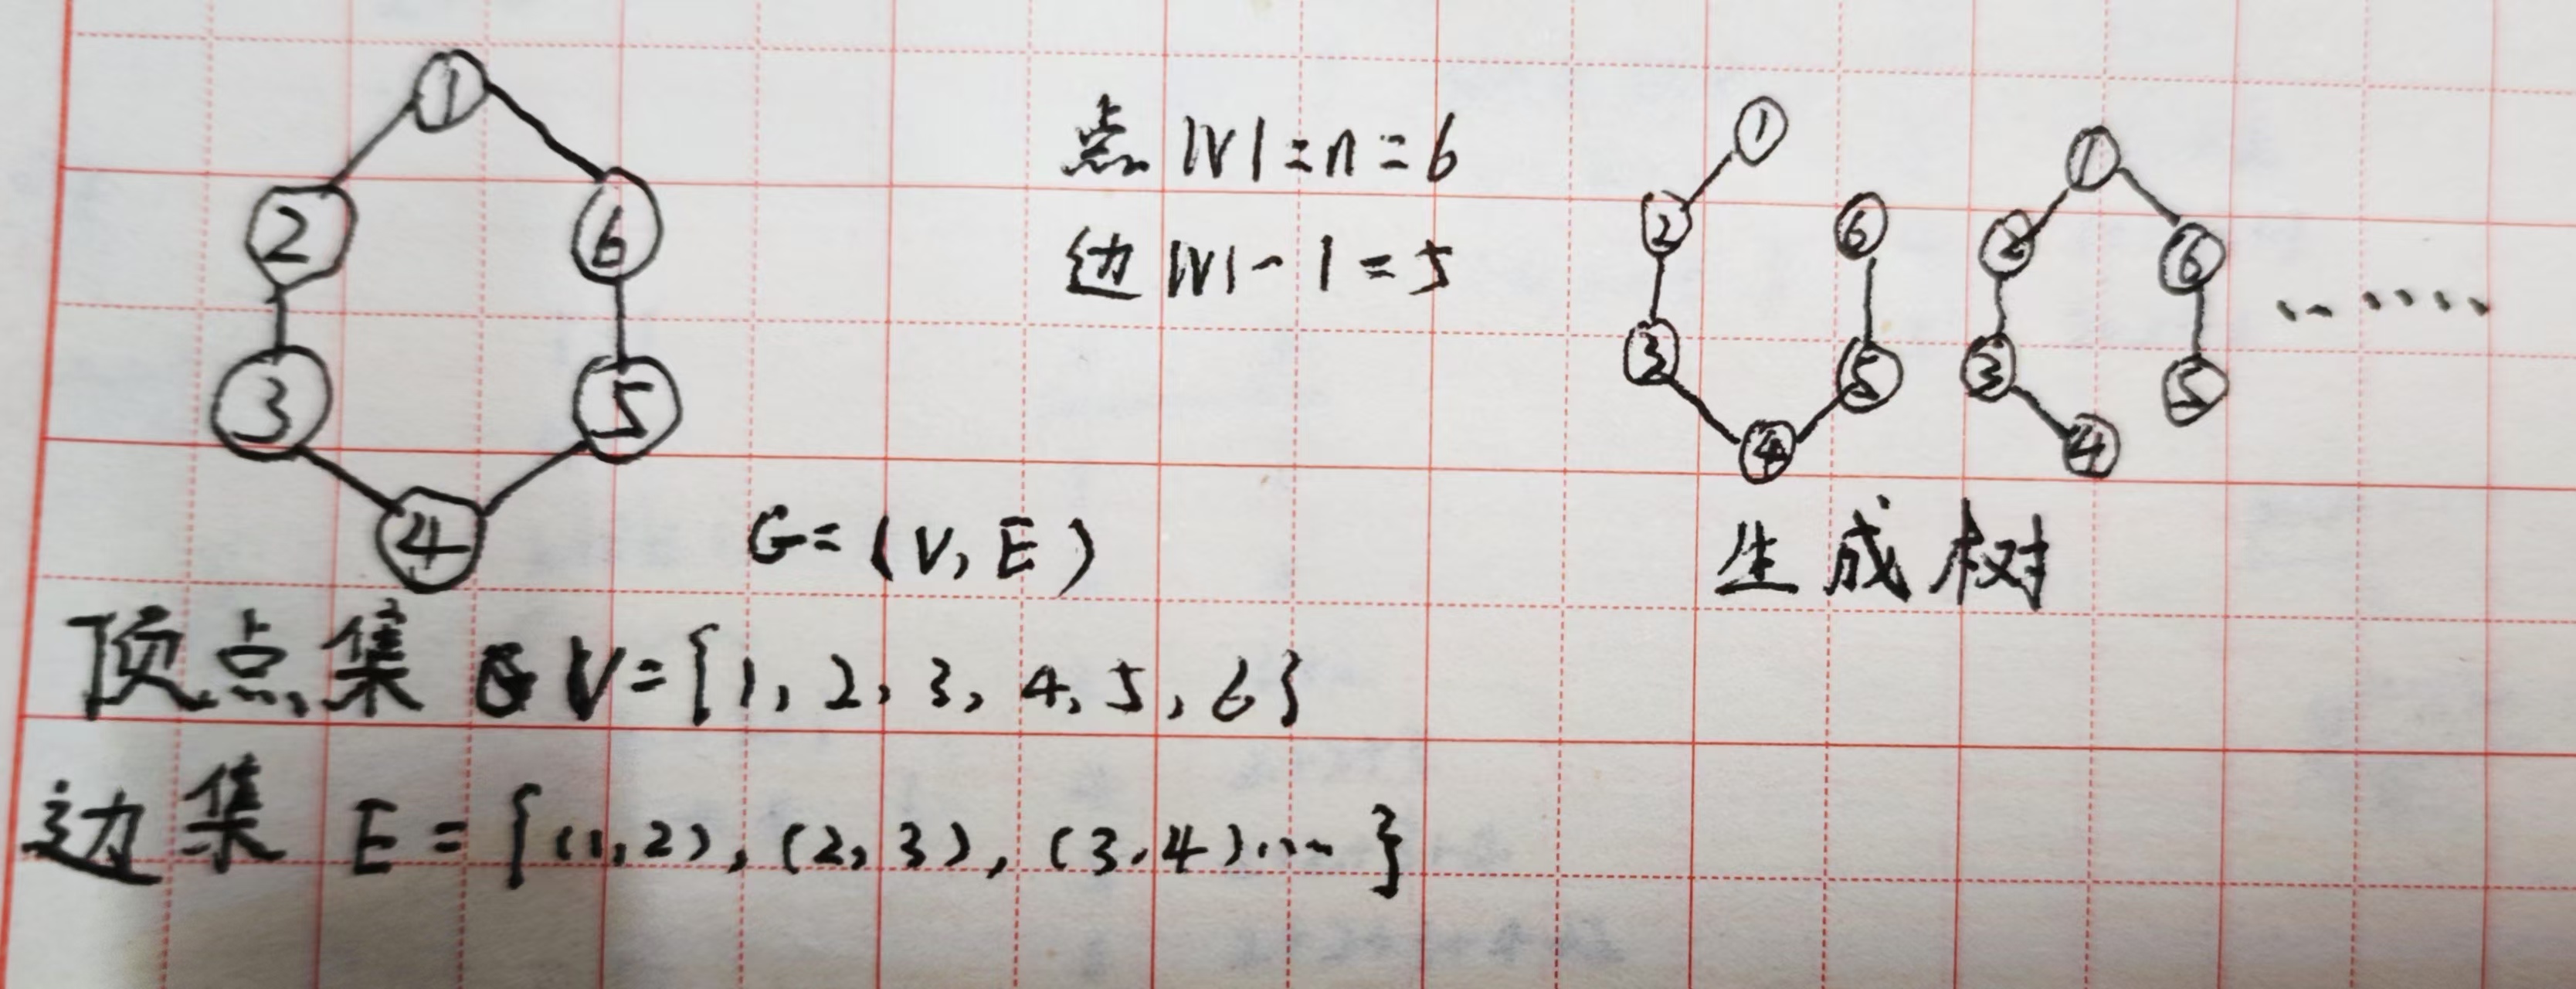 ①
②
⑥
③
⑤
④
点 |V|=n=6
边 |V|-1=5
G=(V, E)
①
②
⑥
③
⑤
④
①
②
⑥
③
⑤
④
......
生成树
顶点集 V={1, 2, 3, 4, 5, 6}
边集 E={(1,2), (2,3), (3,4)...}